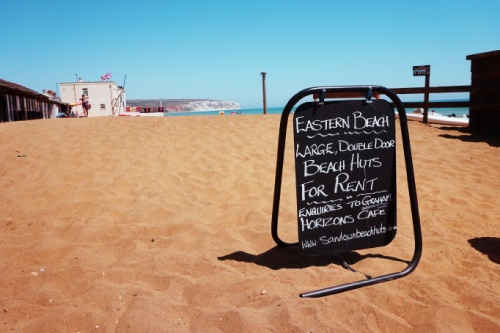 EASTERN BEACH
LARGE, DOUBLE DOOR
BEACH HUTS
FOR RENT
ENQUIRIES TO GRAHAM
HORIZONS CAFE
www.sandownbeachhuts